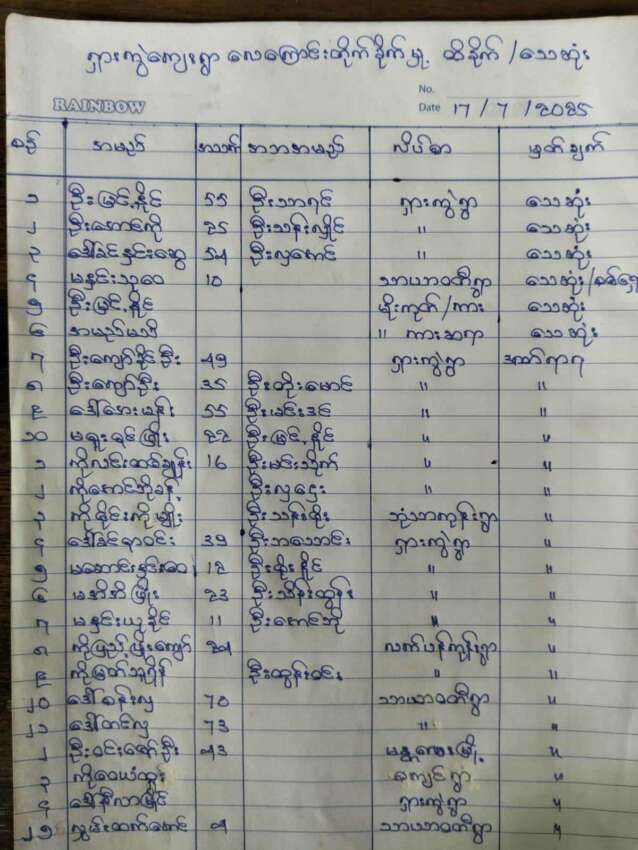 ရှားကွဲကျေးရွာ လေကြောင်းတိုက်ခိုက်မှု ထိခိုက်/သေဆုံး
RAINBOW
No.
Date 17/7/2025
စဉ် အမည် အသက် အဘအမည် လိပ်စာ မှတ်ချက်
၁ ဦးမြင့်နိုင် 55 ဦးသာရင် ရှားကွဲရွာ သေဆုံး
၂ ဦးအောင်ကို 25 ဦးသန်းလှိုင် " သေဆုံး
၃ ဒေါ်ခင်နှင်းဆွေ 54 ဦးလှမောင် " သေဆုံး
၄ မနှင်းသုဝေ 10 သာယာဝတီရွာ သေဆုံး/စစ်ရှောင်
၅ ဦးမြင့်နိုင် မိုးကုတ်/ကား သေဆုံး
၆ အမည်မသိ " ကားဆရာ သေဆုံး
၇ ဦးကျော်နိုင်ဦး 49 ရှားကွဲရွာ ဒဏ်ရာရ
၈ ဦးကျော်ဦး 35 ဦးတိုးမောင် " "
၉ ဒေါ်အေးမွန် 55 ဦးမင်းဒင် " "
၁၀ မဖူးငုံဖြိုး 22 ဦးမြင့်နိုင် " "
၁ ကိုလင်းထင်ချွန်း 16 ဦးမင်းသိုက် " "
၂ ကိုအောင်ဘိုခန့် ဦးလှဌေး " "
၃ ကိုနိုင်းကိုမျိုး ဦးသန်းစိုး ဘုံသာကုန်းရွာ "
၄ ဒေါ်ခင်ရာဝင်း 39 ဦးဘသောင်း ရှားကွဲရွာ "
၅ မအောင်းနှင်းဝေ 12 ဦးစိုးနိုင် " "
၆ မအိအိဖြိုး 23 ဦးသိန်းထွန်း " "
၇ မနှင်းယုနိုင် 11 ဦးအောင်ဘို " "
၈ ကိုပြည့်ဖြိုးကျော် 24 လက်ပံကုန်းရွာ "
၉ ကိုမြတ်သူရိန် ဦးထွန်းဝင်း " "
၂၀ ဒေါ်ခန်းလှ 70 သာယာဝတီရွာ "
၂၁ ဒေါ်တင်လှ 73 " "
၂ ဦးဝင်းဇော်ဦး 43 မန္တလေးမြို့ "
၃ ကိုဝေယံထွန်း ကျေင်ရွာ "
၄ ဒေါ်နီလာမြိုင် ရှားကွဲရွာ "
၂၅ လွှမ်းထက်အောင် 4 သာယာဝတီရွာ "